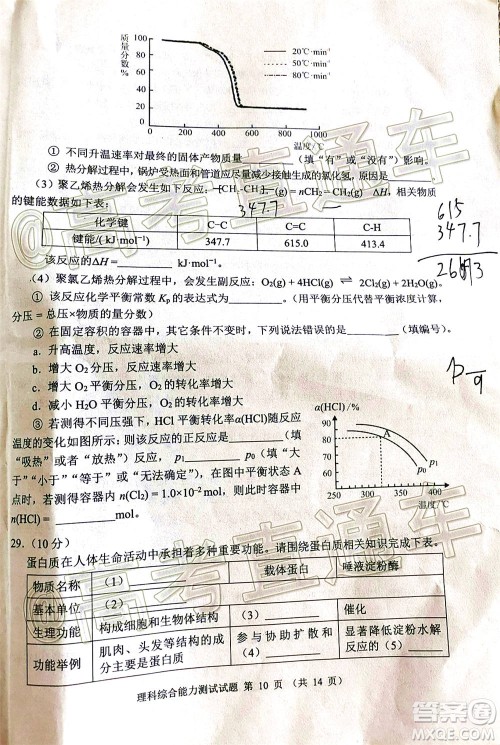 质量分数 %
100
80
60
40
20
0
200 400 600 800 1000
温度/℃
20℃·min⁻¹
50℃·min⁻¹
80℃·min⁻¹
① 不同升温速率对最终的固体产物质量______（填“有”或“没有”）影响。
② 热分解过程中，锅炉受热面和管道应尽量减少接触生成的氯化氢，原因是
（3）聚乙烯热分解会发生如下反应，-[CH₂-CH₂-]ₙ(g) = nCH₂=CH₂(g) ΔH，相关物质
的键能数据如下表：
347.7
化学键 C-C C=C C-H
键能/( kJ·mol⁻¹) 347.7 615.0 413.4
该反应的ΔH=______ kJ·mol⁻¹。
615
347.7
（4）聚氯乙烯热分解过程中，会发生副反应：O₂(g) + 4HCl(g) ⇌ 2Cl₂(g) + 2H₂O(g)。
① 该反应化学平衡常数 Kp 的表达式为______。（用平衡分压代替平衡浓度计算，
分压 = 总压×物质的量分数）
② 在固定容积的容器中，其它条件不变时，下列说法错误的是______（填编号）。
a. 升高温度，反应速率增大
b. 增大 O₂ 分压，反应速率增大
c. 增大 O₂ 平衡分压，O₂ 的转化率增大
d. 减小 H₂O 平衡分压，O₂ 的转化率增大
③ 若测得在不同压强下，HCl 平衡转化率随反应
温度的变化如图所示；则该反应的正反应是______（填
“吸热”或者“放热”）反应，p₁______p₀（填“大
于”“小于”“等于”或“无法确定”），在图中平衡状态 A
点时，若测得容器中 n(Cl₂) = 1.0×10⁻² mol，则
n(HCl) = ______ mol。
α(HCl) / %
90
80
70
60
50
A
p₁
p₀
250 300 350 400
温度/℃
29.（10 分）
蛋白质在人体生命活动中承担着多种重要功能。请围绕蛋白质相关知识完成下表。
物质名称 （1） 载体蛋白 唾液淀粉酶
基本单位 （2）
生理功能 构成细胞和生物体结构 （3） 催化
功能举例 肌肉、头发等结构的成分主要是蛋白质 参与协助扩散和（4） 显著降低淀粉水解反应的（5）
理科综合能力测试试题 第 10 页 （共 14 页）
高考直通车
答案圈
MXQE.COM